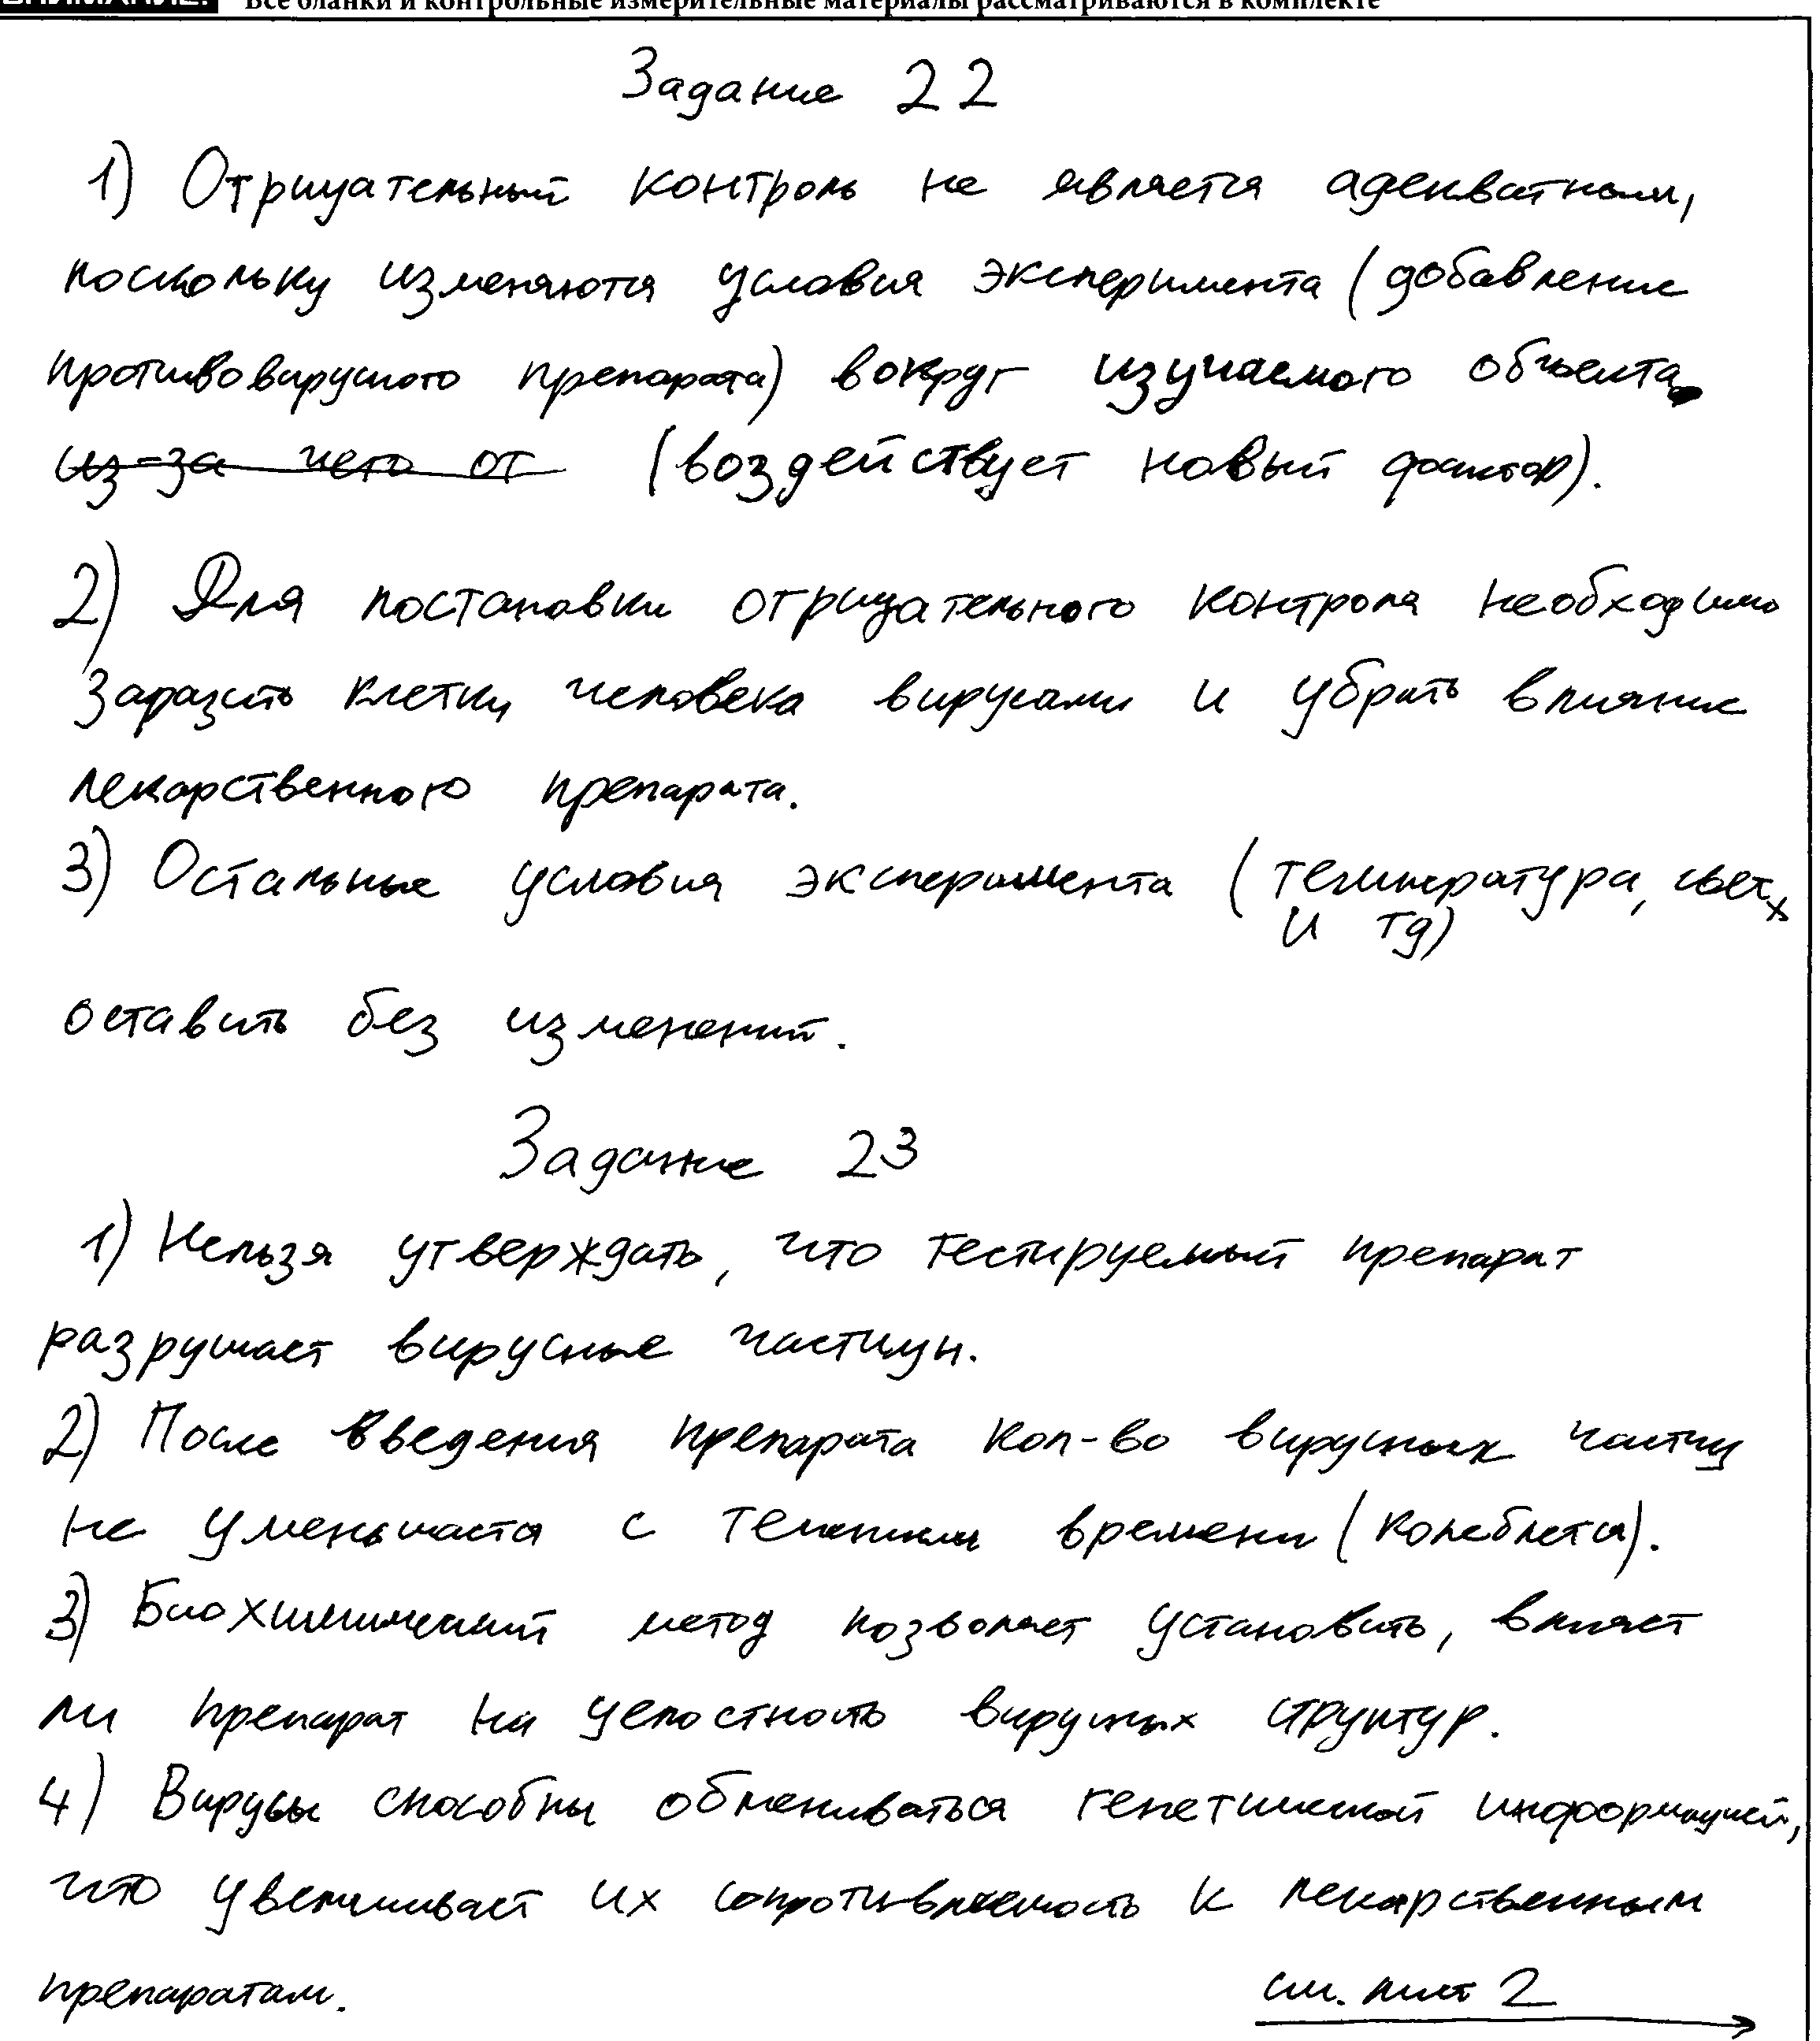 ВНИМАНИЕ! Все бланки и контрольные измерительные материалы рассматриваются в комплекте
Задание 22
1) Отрицательный контроль не является адекватным,
поскольку изменяются условия эксперимента (добавление
противовирусного препарата) вокруг изучаемого объекта
из-за чего от (воздействует новый фактор).
2) Для постановки отрицательного контроля необходимо
заразить клетки человека вирусами и убрать влияние
лекарственного препарата.
3) Остальные условия эксперимента (температура, свет
и тд)
оставить без изменений.
Задание 23
1) Нельзя утверждать, что тестируемый препарат
разрушает вирусные частицы.
2) После введения препарата кол-во вирусных частиц
не уменьшается с течением времени (колеблется).
3) Биохимический метод позволяет установить, влияет
ли препарат на целостность вирусных структур.
4) Вирусы способны обмениваться генетической информацией,
что увеличивает их сопротивляемость к лекарственным
препаратам.
см. лист 2